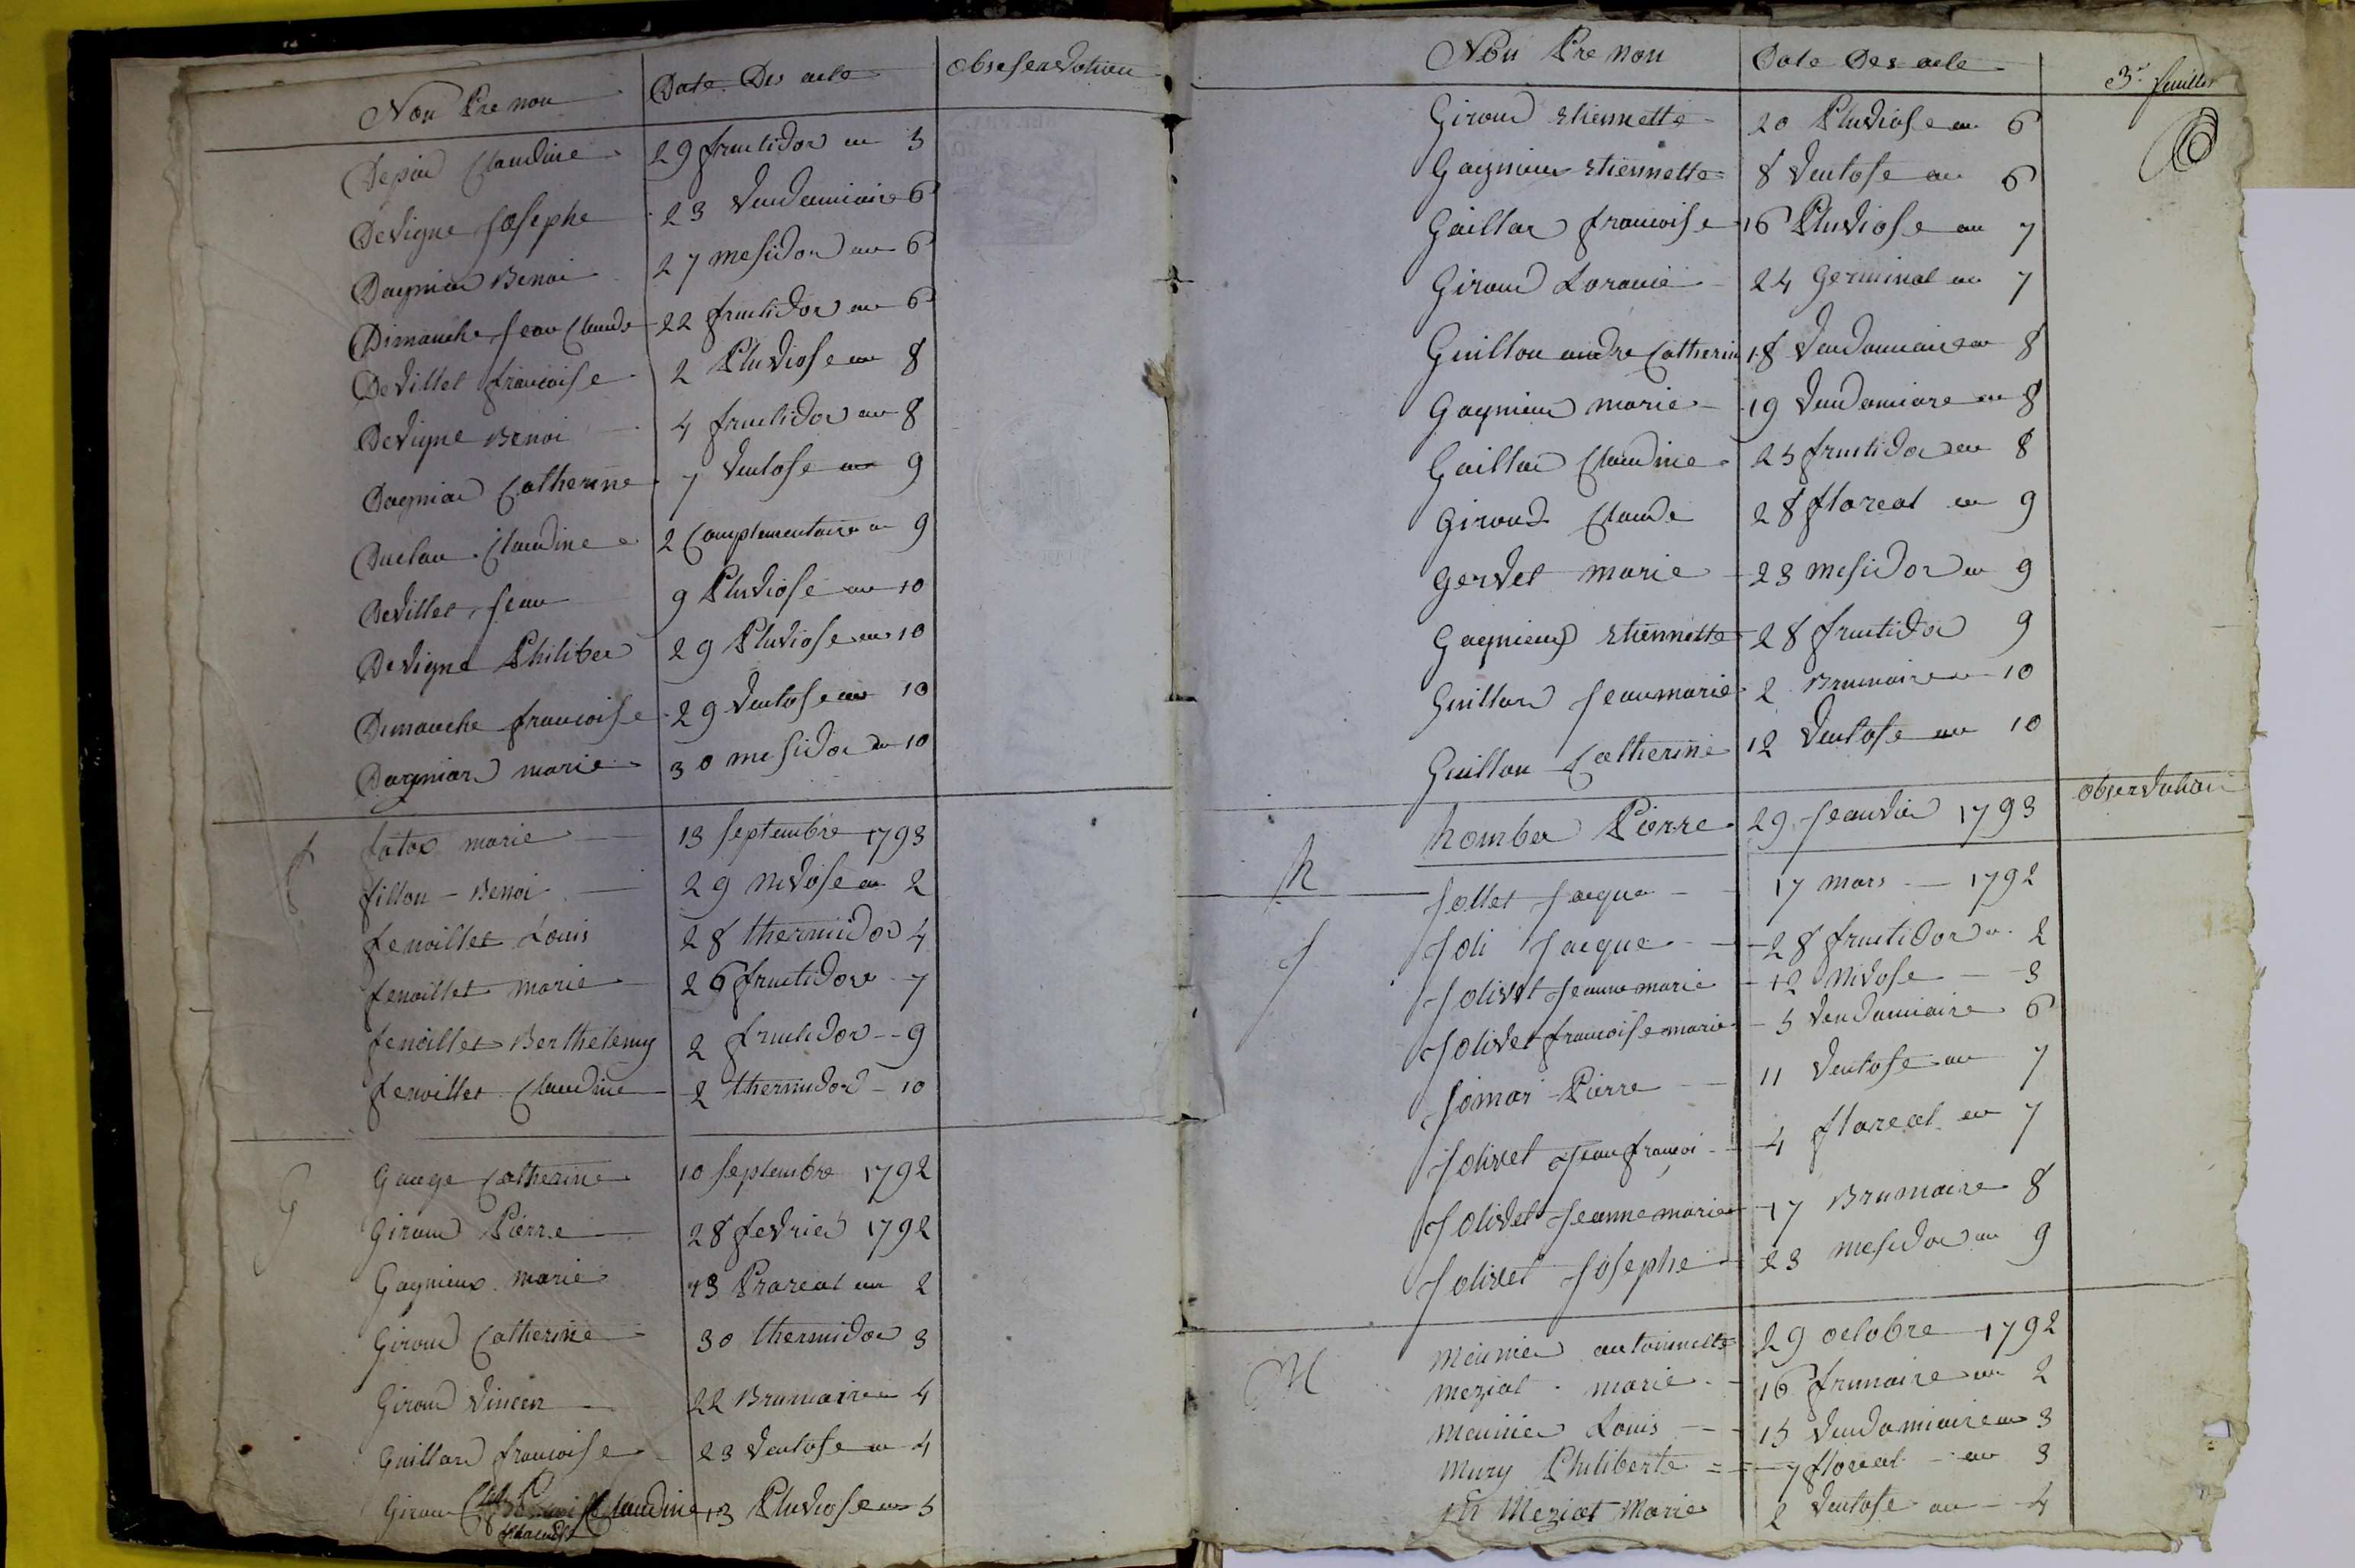 Non Pre non Date Des acte
Depiar Claudine 29 fructidor an 3
Devigne Josephe 23 vendemiaire 6
Dagniar Benoi 27 mesidor an 6
Dimanche Jean Claude 22 fructidor an 6
Devillet francoise 2 Pluviose an 8
Devigne Benoi 4 fructidor an 8
Dagniar Catherinne 7 ventose an 9
Duclau Claudine 2 Complementaire an 9
Devillet Jean 9 Pluviose an 10
Devigne Philiber 29 Pluviose an 10
Dimanche francoise 29 ventose an 10
Dagniar marie 30 mesidor an 10
f fatox marie 13 septembre 1793
fillon Benoi 29 nivose an 2
fenoillet Louis 28 thermidor 4
fenoillet marie 26 fructidor 7
fenoillet Berthelemy 2 fructidor 9
fenoillet Claudine 2 thermidor 10
G Gauge Catherine 10 septembre 1792
Giroud Pierre 28 fevrier 1792
Gagnieux marie 13 Prareal an 2
Giroud Catherine 30 thermidor 3
Giroud vincen 22 Brumaire 4
Guillard francoise 23 ventose an 4
Girou Claudine 13 Pluviose an 5
Non Pre non Date Des acte 3e feuillet
Giroud Etiennette 20 Pluviose an 6
Gagnieur Etiennette 8 ventose an 6
Gaillar francoise 16 Pluviose an 7
Giroud 24 Germinal an 7
Guillon andre Catherin 18 vendemiaire an 8
Gagnieur marie 19 vendemiare an 8
Gaillar Claudine 25 fructidor an 8
Giroud Claude 28 floreal an 9
Gervet marie 23 mesidor an 9
Gagnieux Etiennette 28 fructidor 9
Guillard Jean marie 2 Brumaire an 10
Guillon Catherine 12 ventose an 10
h homber Pierre 29 Jeanvier 1793 observation
Jollet Jacque 17 mars 1792
J Joli Jacque 28 fructidor an 2
Jolivet Jeanne marie 12 nivose 3
Jolivet francoise marie 5 vendemiaire 6
Jomar Pierre 11 ventose an 7
Jolivet Jean françoi 4 floreal an 7
Jolivet Jeanne marie 17 Brumaire 8
Jolivet Josephe 23 mesidor an 9
M Meunier antoinette 29 octobre 1792
meziat marie 16 frimaire an 2
meunier Louis 15 vendemiaire an 3
mury Philiberte 7 floreal an 3
Meziat Marie 2 ventose an 4